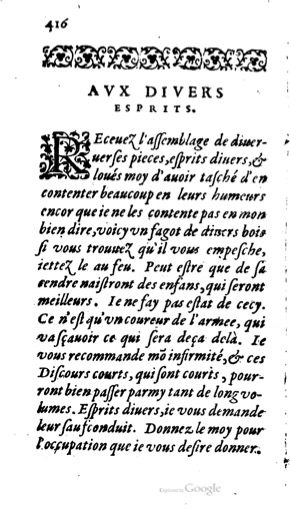 416
AVX DIVERS
ESPRITS.
REceuez l'assemblage de diuer-
uerses pieces, esprits diuers, &
loués moy d'auoir tasché d'en
contenter beaucoup en leurs humeurs
encor que ie ne les contente pas en mon
bien dire, voicy vn fagot de diuers bois
si vous trouuez qu'il vous empesche,
iettez le au feu. Peut estre que de sa
cendre naistront des enfans, qui seront
meilleurs. Ie ne fay pas estat de cecy.
Ce n'est qu'vn coureur de l'armee, qui
va sçauoir ce qui sera deça delà. Ie
vous recommande mō infirmité, & ces
Discours courts, qui sont courts, pour-
ront bien passer parmy tant de long vo-
lumes. Esprits diuers, ie vous demande
leur saufconduit. Donnez le moy pour
l'occupation que ie vous desire donner.
Digitized by Google